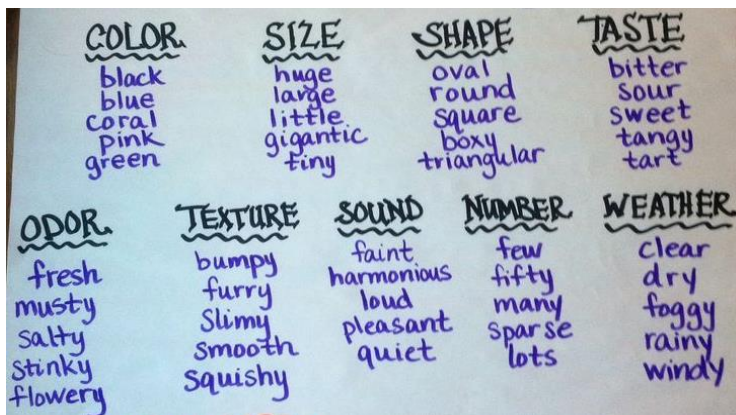 COLOR
black
blue
coral
pink
green
SIZE
huge
large
little
gigantic
tiny
SHAPE
oval
round
square
boxy
triangular
TASTE
bitter
sour
sweet
tangy
tart
ODOR
fresh
musty
salty
stinky
flowery
TEXTURE
bumpy
furry
slimy
smooth
squishy
SOUND
faint
harmonious
loud
pleasant
quiet
NUMBER
few
fifty
many
sparse
lots
WEATHER
clear
dry
foggy
rainy
windy